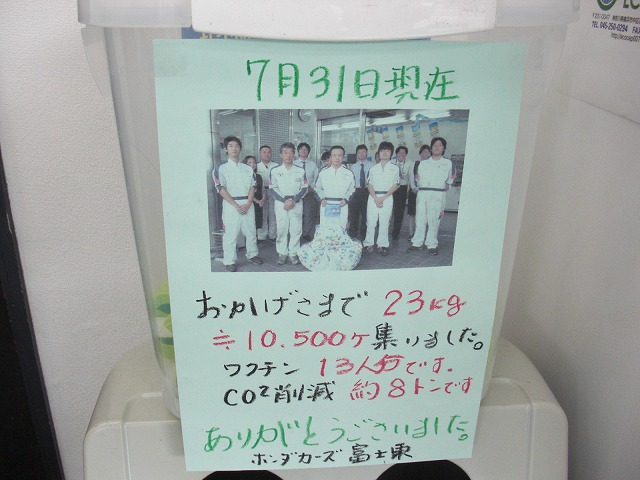 7月31日現在
おかげさまで 23kg
≒10.500ケ集りました。
ワクチン 13人分です。
CO²削減 約8トンです
ありがとうございました。
ホンダカーズ富士東
TEL 045-250-0294 FAX